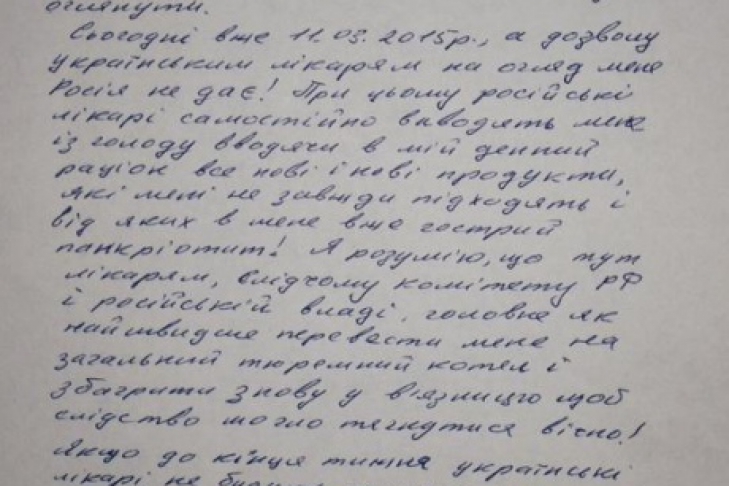 оглянути.
Сьогодні вже 11.03.2015р., а дозволу
українським лікарям на огляд мене
Росія не дає! При цьому російські
лікарі самостійно виводять мене
із голоду вводячи в мій денний
раціон все нові і нові продукти,
які мені не завжди підходять і
від яких в мене вже гострий
панкріотит! Я розумію, що тут
лікарям, Слідчому комітету РФ
і російській владі, головне як
найшвидше перевести мене на
загальний тюремний котел і
збагрити знову у в'язницю щоб
слідство могло тягнутися вічно!
Якщо до кінця тижня українські
лікарі не